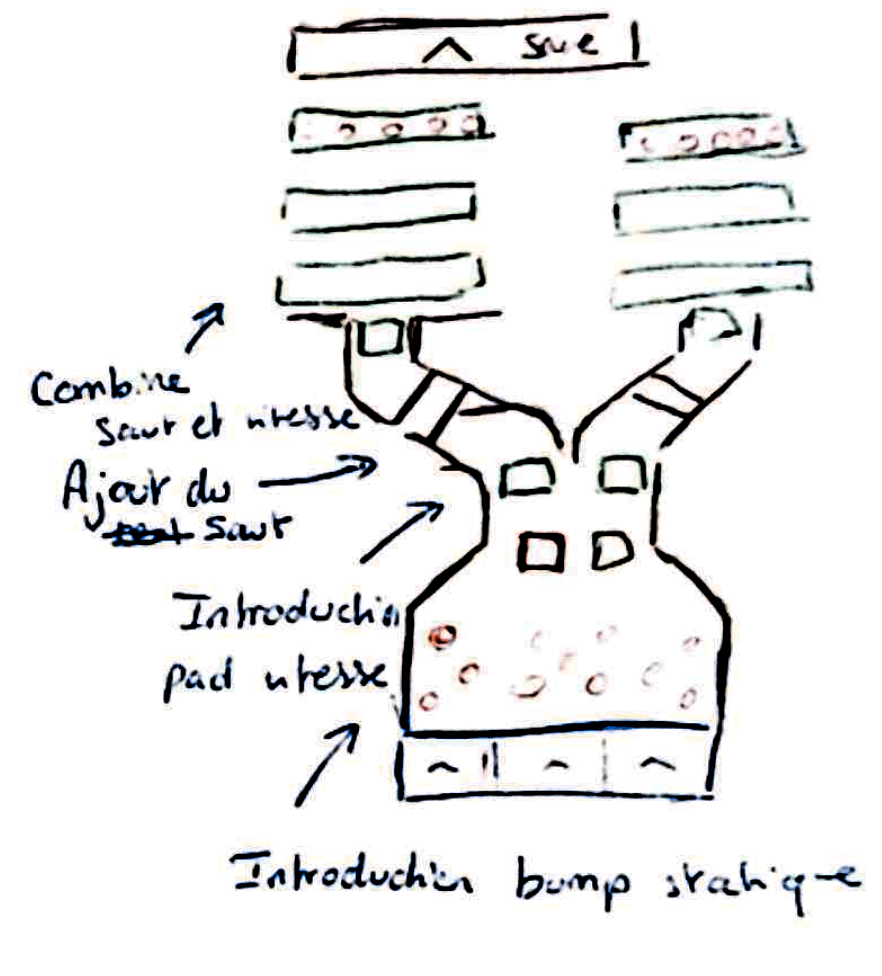 Combine
saut et vitesse
Ajout du
saut
Introduction
pad vitesse
Introduction bump statique